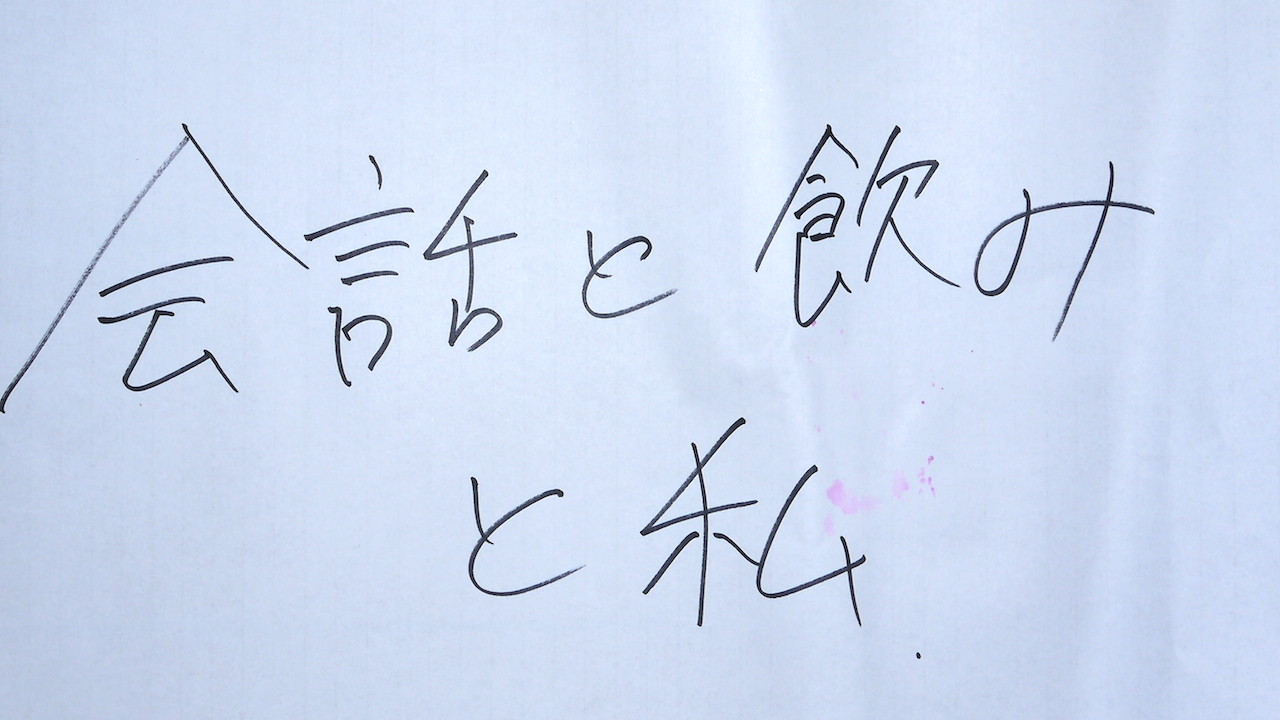 会話と飲み
と私.